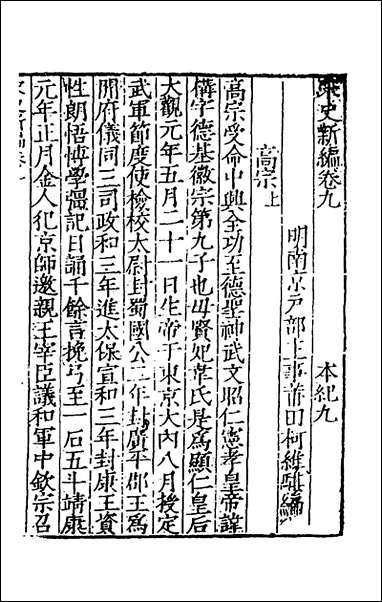 宋史新編卷九 本紀九
明南京戶部主事莆田柯維騏編
高宗上
高宗受命中興全功至德聖神武文昭仁憲孝皇帝諱
構字德基徽宗第九子也母賢妃韋氏是爲顯仁皇后
大觀元年五月二十一日生帝于東京大內八月授定
武軍節度使檢校太尉封蜀國公二年封廣平郡王爲
開府儀同三司政和三年進太保宣和三年封康王資
性朗悟博學彊記日誦千餘言挽弓至一石五斗靖康
元年正月金人犯京師邀親王宰臣議和軍中欽宗召
宋史新編卷九